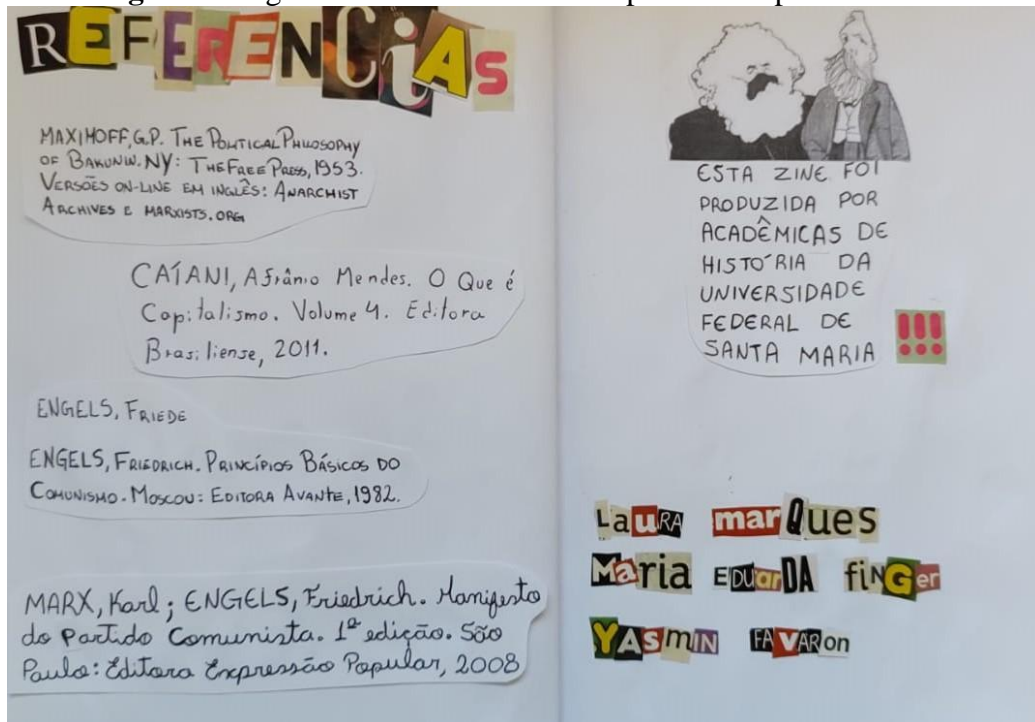 REFERENCIAS
MAXIMOFF, G.P. THE POLITICAL PHILOSOPHY
OF BAKUNIN. NY: THE FREE PRESS, 1953.
VERSÕES ON-LINE EM INGLÊS: ANARCHIST
ARCHIVES E MARXISTS.ORG
CATANI, Afrânio Mendes. O Que é
Capitalismo. Volume 4. Editora
Brasiliense, 2011.
ENGELS, FRIEDE
ENGELS, FRIEDRICH. PRINCÍPIOS BÁSICOS DO
COMUNISMO. MOSCOU: EDITORA AVANTE, 1982.
MARX, Karl; ENGELS, Friedrich. Manifesto
do Partido Comunista. 1ª edição. São
Paulo: Editora Expressão Popular, 2008
ESTA ZINE FOI
PRODUZIDA POR
ACADÊMICAS DE
HISTÓRIA DA
UNIVERSIDADE
FEDERAL DE
SANTA MARIA !!!
LauRA marQues
Maria EDUarDA fiNGer
YASmIN FAVARon